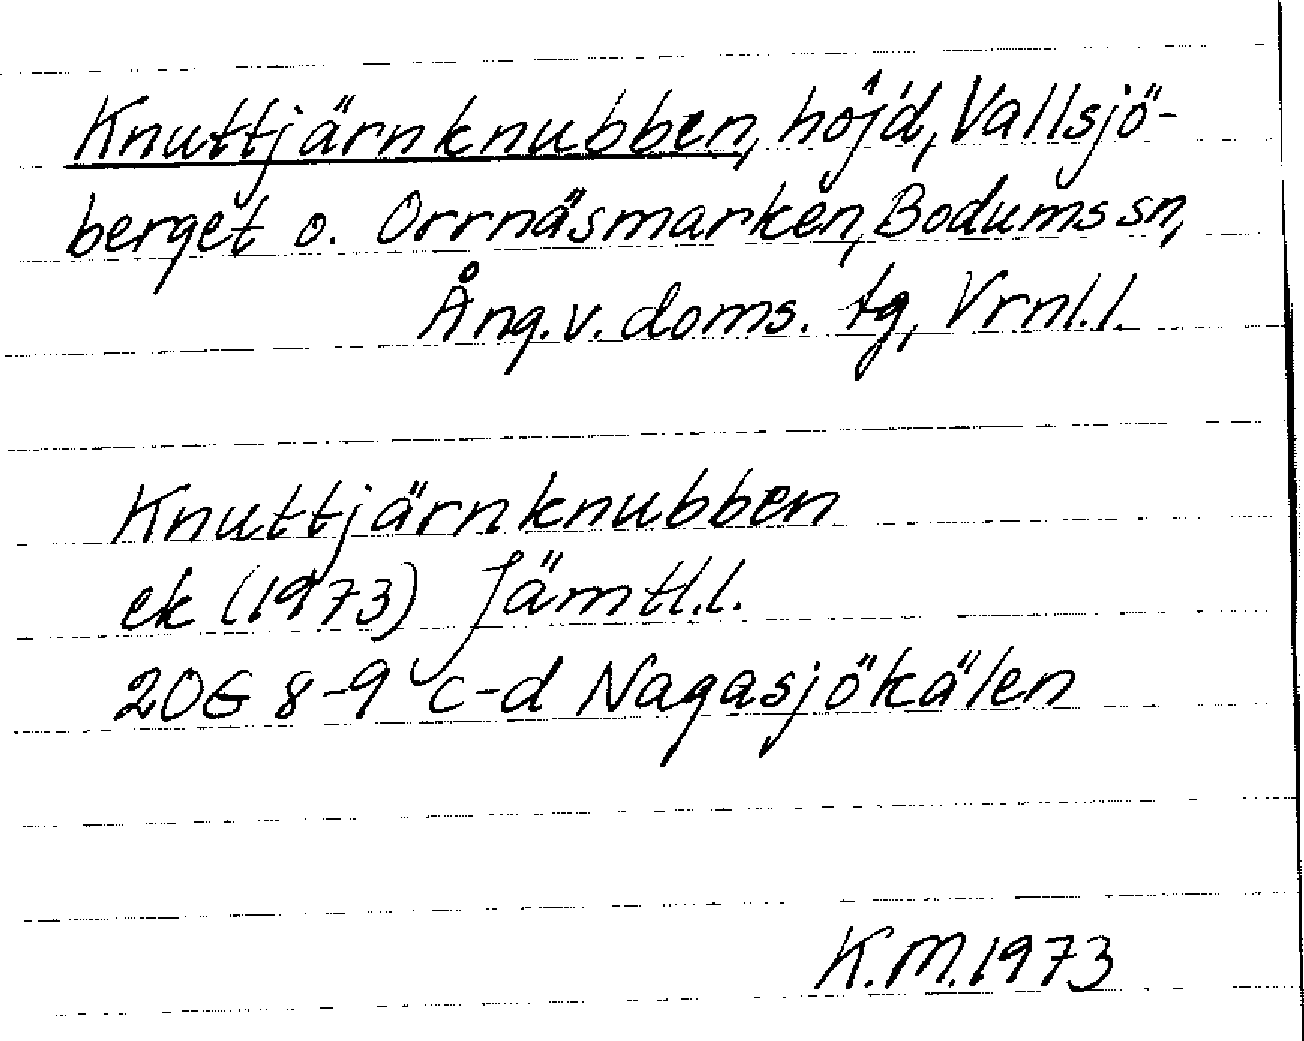 Knuttjärnknubben, höjd, Vallsjö-
berget o. Orrnäsmarken, Bodums sn,
Ång. v. doms. tg, Vrnl. l.
Knuttjärnknubben
ek (1973) Jämtl. l.
20G 8-9 c-d Nagasjökälen
K.M. 1973